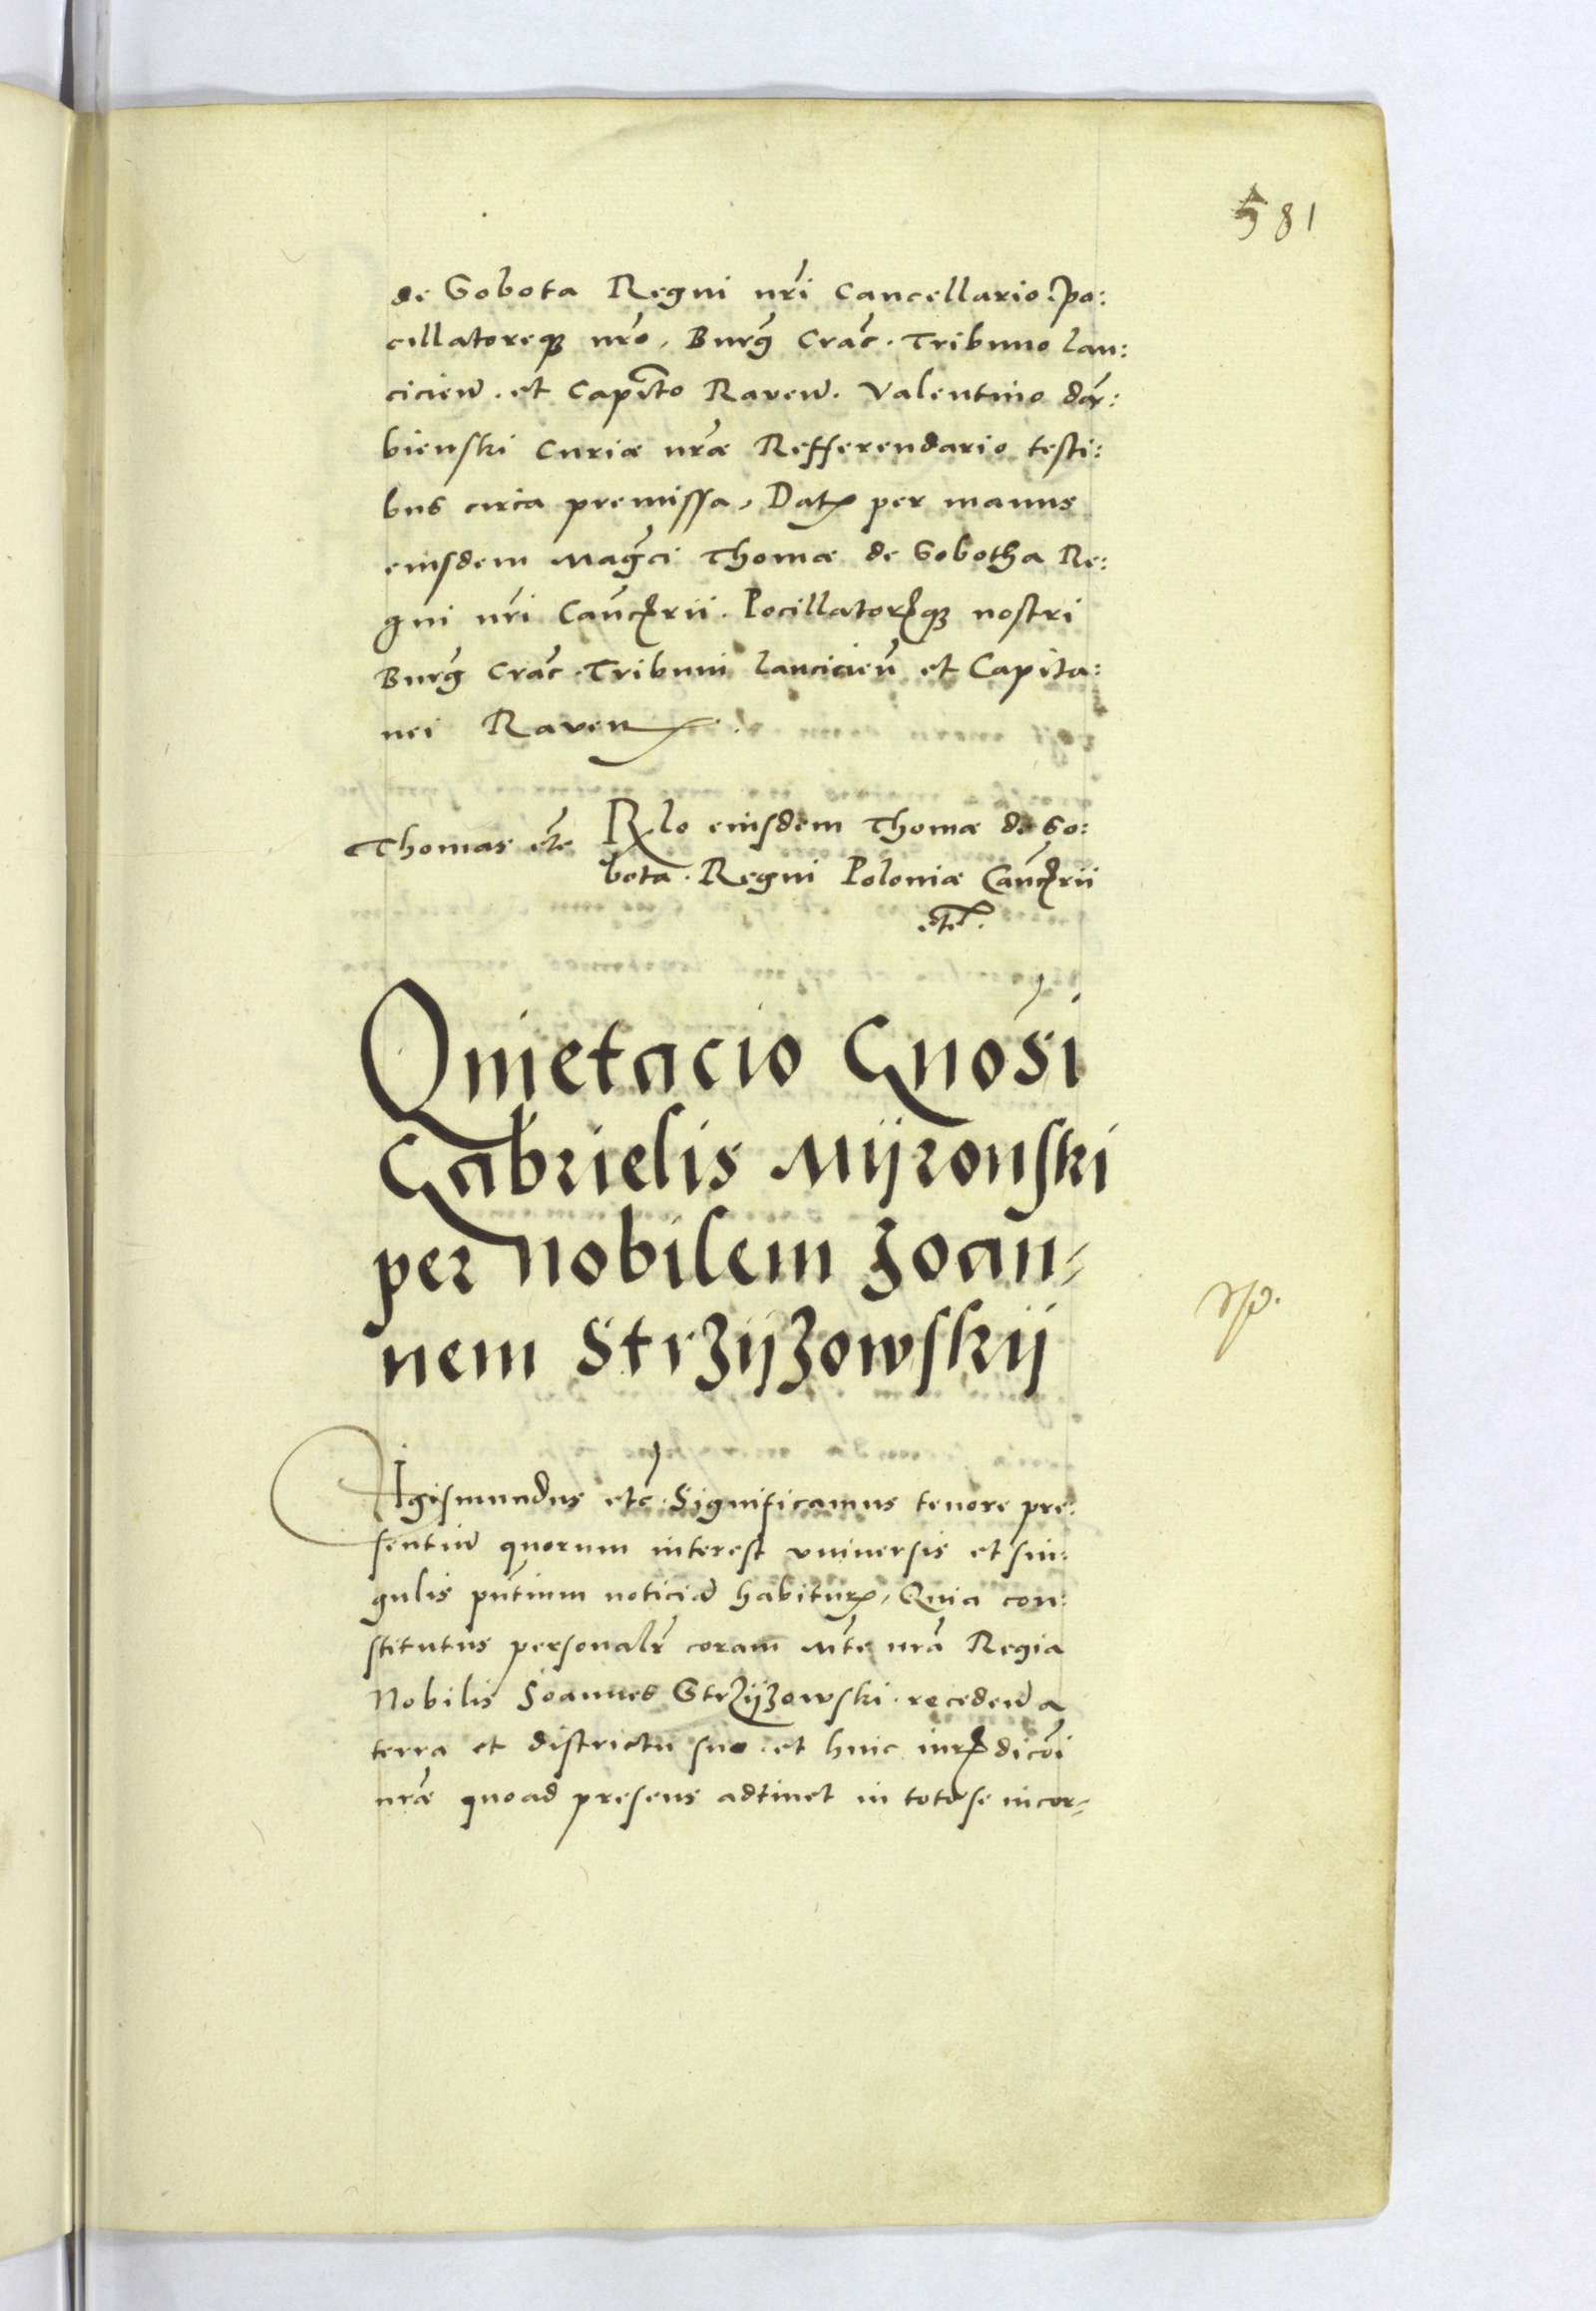 581
de Sobota Regni nrí Cancellario. Po:
cillatoreq3 nró, Burg̃ Crac̃. Tribuno Lan:
cicień. et Capitto Raveń. Valentino dǎr:
bienski Curiæ nrǽ Refferendario testi:
bus circa premissa, Dat. per manus
eiusdem Magci Thomæ de Sobotha Re:
gni nrí Canc̃rii. Pocillatorisq3 nostri
Burg̃ Crac̃. Tribuni Lancicień et Capita:
nei Raven.
Thomas etc̃ Rlo eiusdem Thomæ de So:
bota. Regni Poloniæ Canc̃rii
etc.
Quietacio Gnosi
Gabrielis Mijronski
per Nobilem Joan=
nem Strzijzowskij
Sigismundus etc̃. Significamus tenore pre:
sentiũ quorum interest universis et sin:
gulis pñtium noticiã habitur. Quia con:
stitutus personalr̃ coram Mte nrã Regia
Nobilis Joannes Strzijzowski. recedeñ a
terra et districtu suo. et huic iurisdicõi
nrǽ quoad presens adtinet in toto se incor=